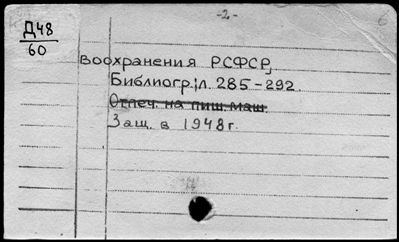 -2-
Д48
60
воохранения РСФСР,
Библиогр.: л. 285-292.
Отпеч. на пиш. маш.
Защ. в 1948 г.